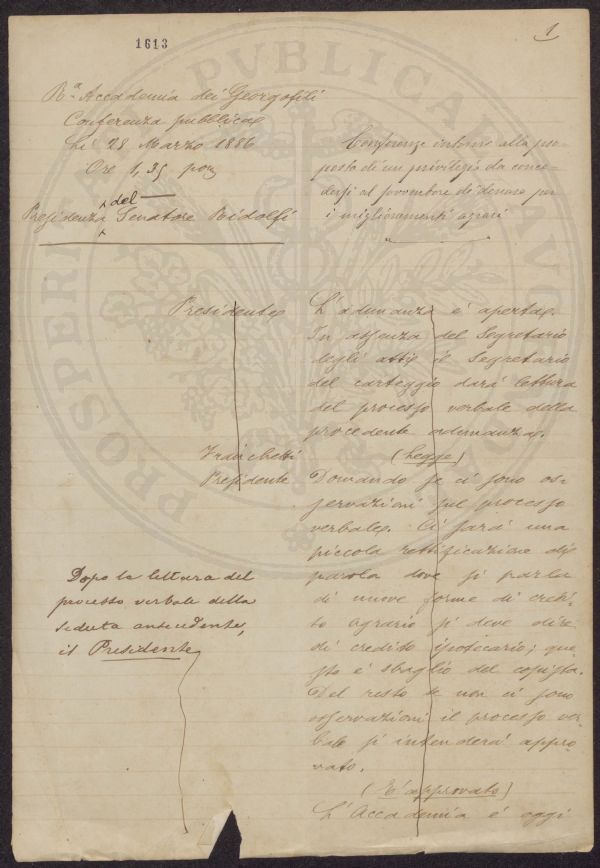 1613
1
Ra. Accademia dei Georgofili
Conferenza pubblica
Li 28 Marzo 1886
Ore 1,35 pom
del
Presidenza Senatore Ridolfi
Conferenze intorno alla pro-
posta di un privilegio da conce-
dersi al sovventore di denaro per
i miglioramenti agrari
Presidente
L'adunanza è aperta.
In assenza del Segretario
degli atti il Segretario
del carteggio darà lettura
del processo verbale della
precedente adunanza.
Franchetti
(Legge)
Presidente
Domando se ci sono os-
servazioni sul processo
verbale. Ci sarà una
piccola rettificazione di
parola dove si parla
di nuove forme di credi-
to agrario si deve dire
di credito ipotecario; que-
sto è sbaglio del copista.
Del resto se non ci sono
osservazioni il processo ver-
bale si intenderà appro-
vato.
(È approvato)
L'Accademia è oggi
Dopo la lettura del
processo verbale della
seduta antecedente,
il Presidente
PROSPERITÀ PUBLICA